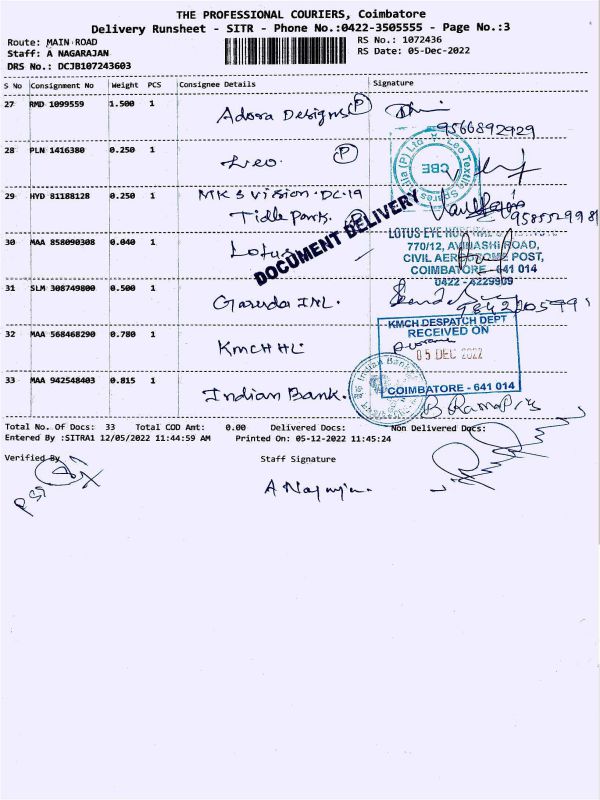 THE PROFESSIONAL COURIERS, Coimbatore
Delivery Runsheet - SITR - Phone No.:0422-3505555 - Page No.:3
Route: MAIN ROAD
RS No.: 1072436
Staff: A NAGARAJAN
RS Date: 05-Dec-2022
DRS No.: DCJB107243603
S No Consignment No Weight PCS Consignee Details Signature
27 RMD 1099559 1.500 1 Adora Designs P
9566892929
28 PLN 1416380 0.250 1 Leo. P
Leo Textile Spares India (P) Ltd
CBE
29 HYD 81188128 0.250 1 MK S Vision. DC-19
Tidle Park.
DOCUMENT DELIVERY
30 MAA 858090308 0.040 1 Lotus
LOTUS EYE HOSPITAL
770/12, AVINASHI ROAD,
CIVIL AERODROME POST,
COIMBATORE - 641 014
0422 - 4229909
31 SLM 308749800 0.500 1 Garuda INL.
32 MAA 568468290 0.780 1 KMCH HL
KMCH DESPATCH DEPT
RECEIVED ON
05 DEC 2022
COIMBATORE - 641 014
33 MAA 942548403 0.815 1 Indian Bank.
Indian Bank
Total No. Of Docs: 33 Total COD Amt: 0.00 Delivered Docs: Non Delivered Docs:
Entered By :SITRA1 12/05/2022 11:44:59 AM Printed On: 05-12-2022 11:45:24
Verified By
Staff Signature